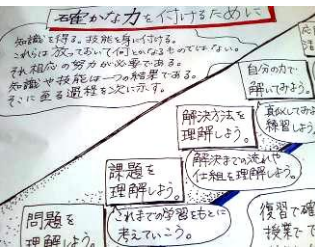 確かな力を付けるために
知識を得る。技能を身に付ける。
これらは放っておいて何とかなるものではない。
それ相応の努力が必要である。
知識や技能は一つの結果である。
そこに至る過程を次に示す。
自分の力で
解いてみよう。
解決方法を
理解しよう。
真似してみよ
練習しよう。
課題を
理解しよう。
解決までの流れや
仕組を理解しよう。
問題を
理解しよう。
これまでの学習をもとに
考えていこう。
復習で確
授業で